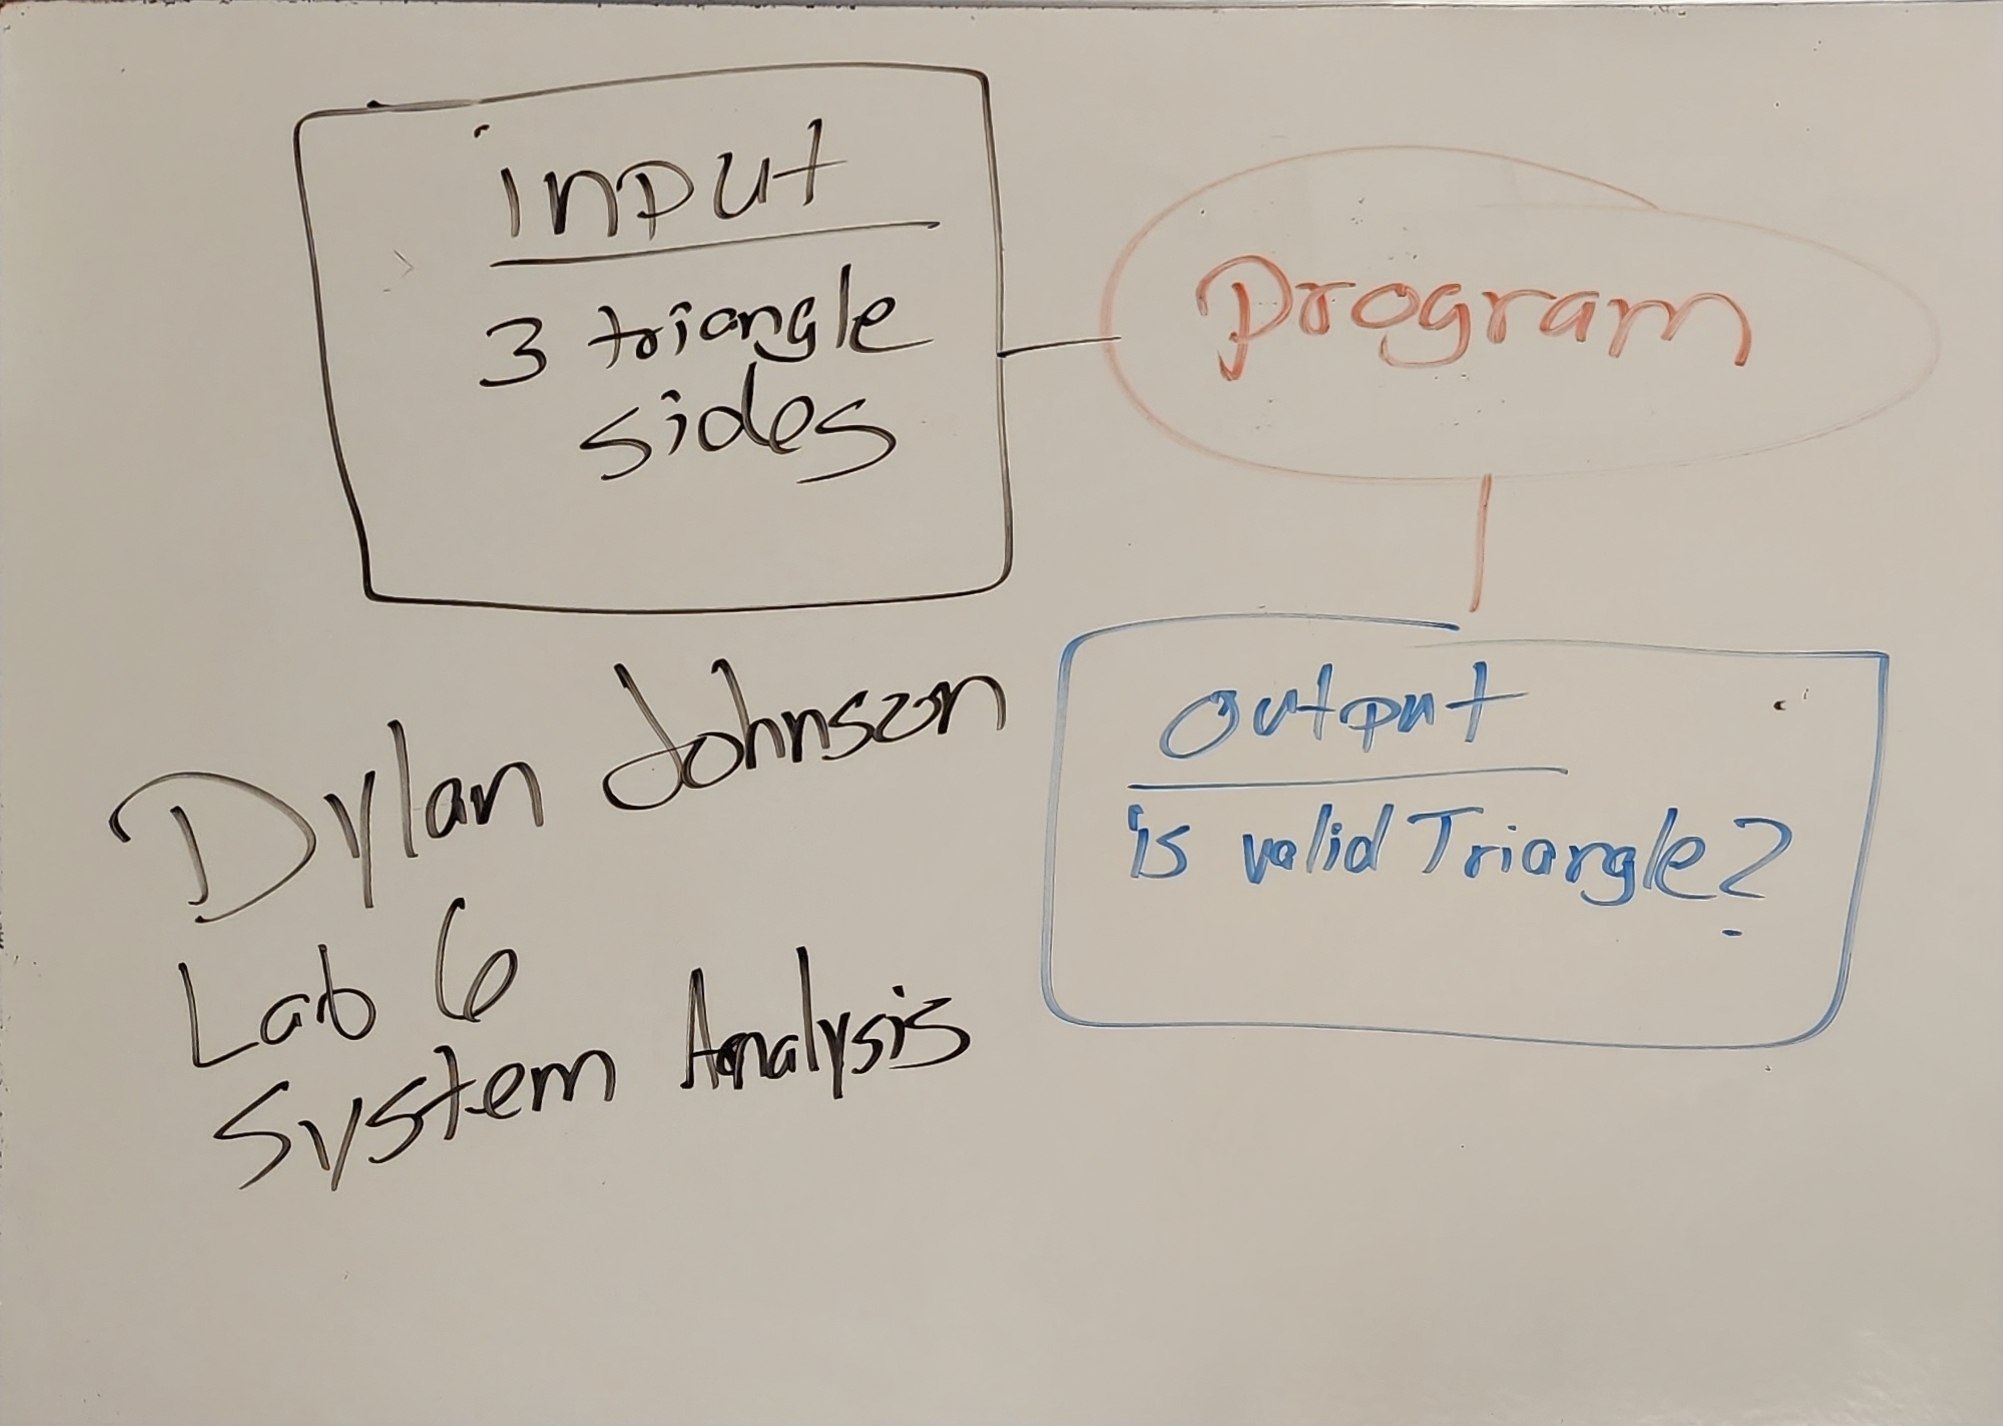 input
3 triangle
sides
Program
output
is valid Triangle?
Dylan Johnson
Lab 6
System Analysis